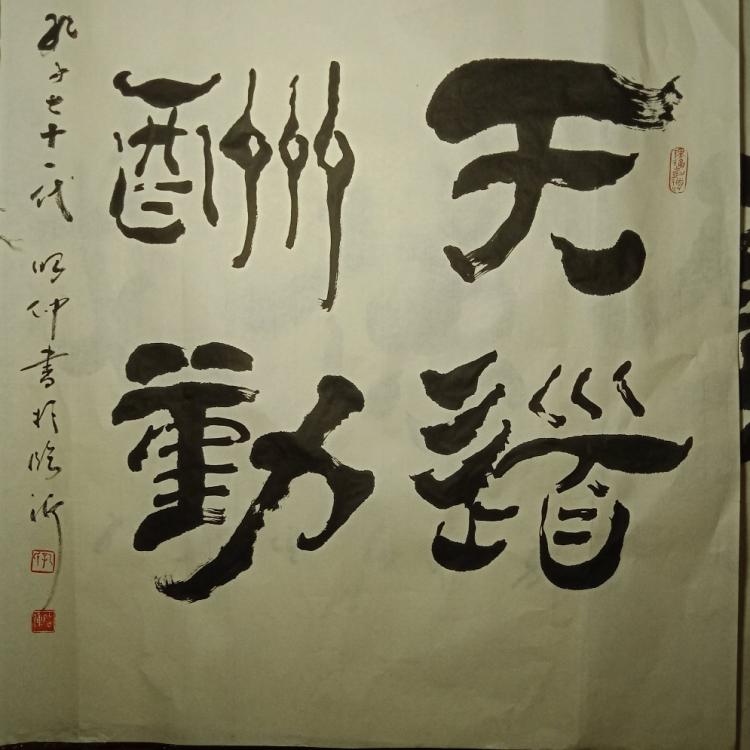 天道
酬勤
孔子七十一代昭仲書於臨沂